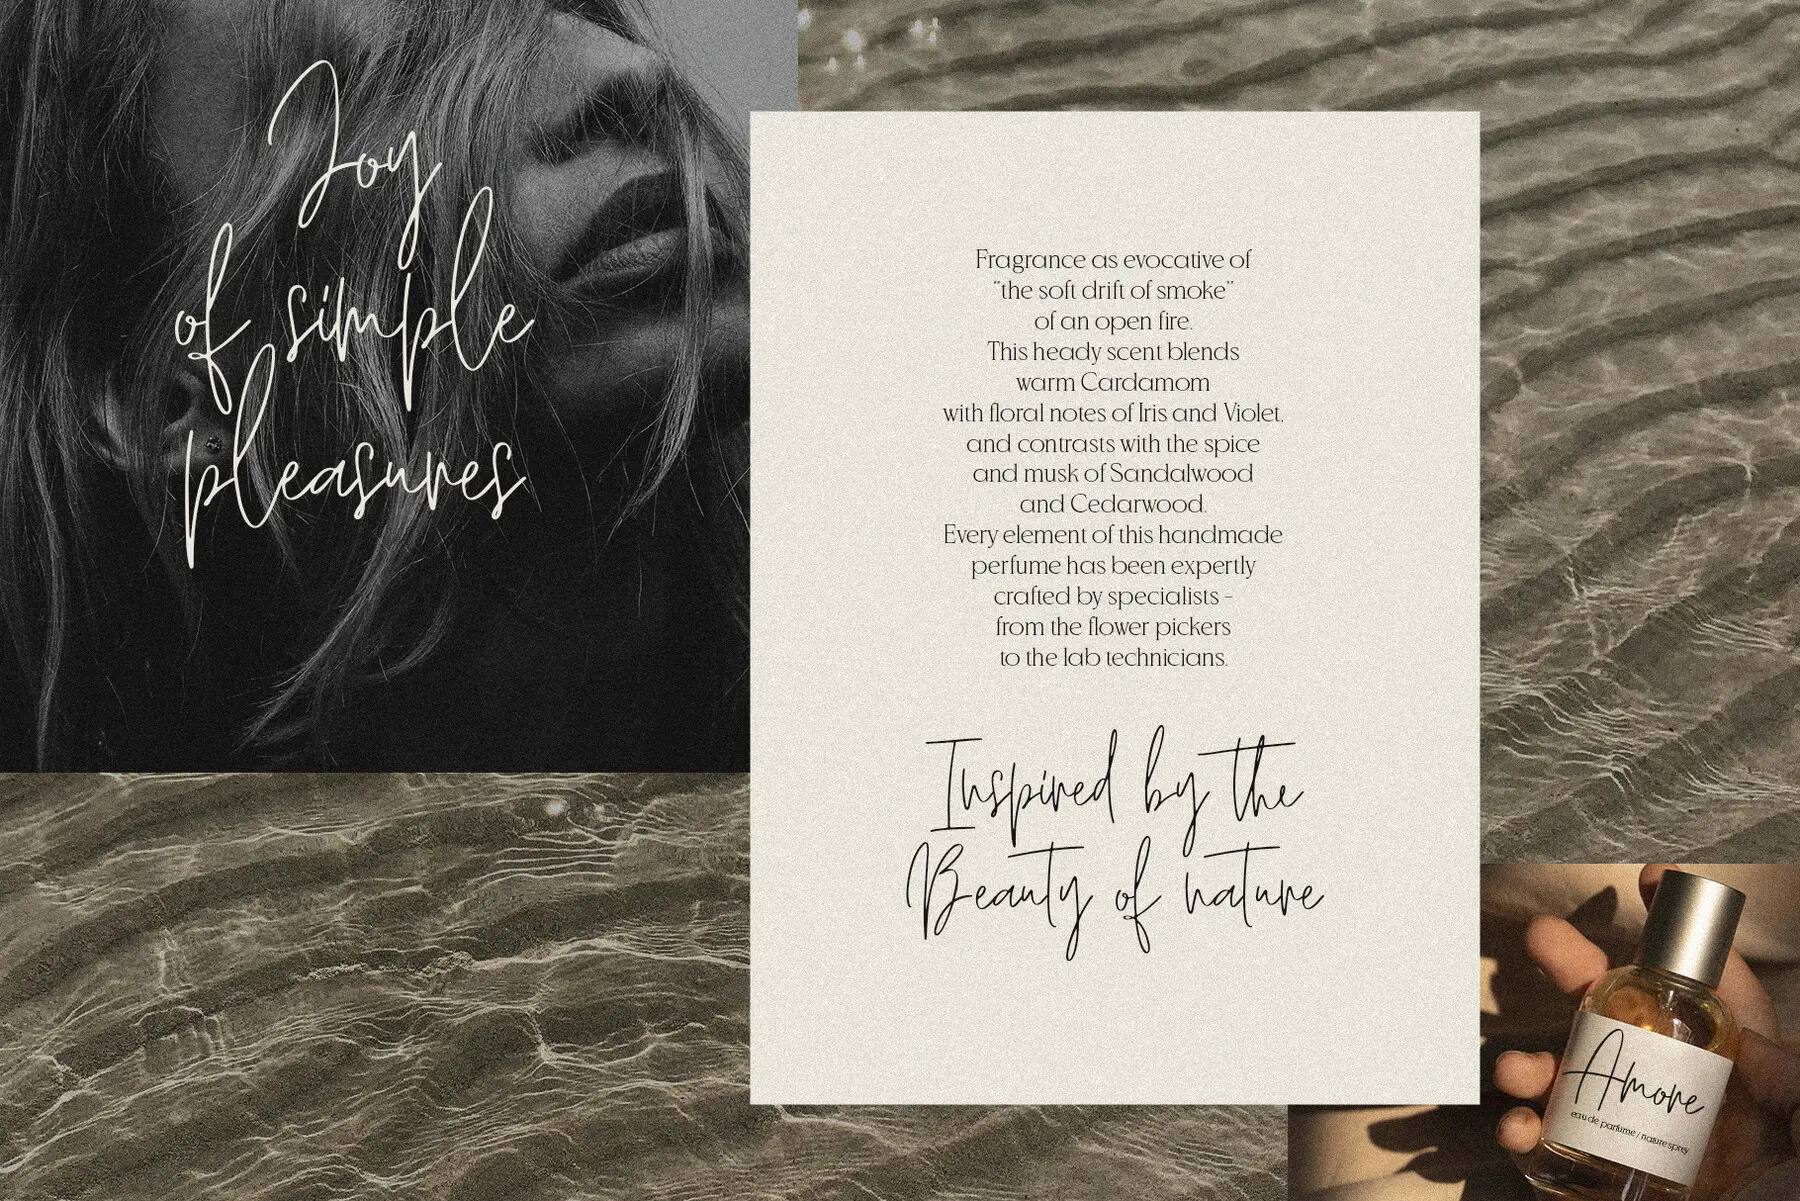 Joy
of simple
pleasures
Fragrance as evocative of
"the soft drift of smoke"
of an open fire.
This heady scent blends
warm Cardamom
with floral notes of Iris and Violet,
and contrasts with the spice
and musk of Sandalwood
and Cedarwood.
Every element of this handmade
perfume has been expertly
crafted by specialists -
from the flower pickers
to the lab technicians.
Inspired by the
Beauty of nature
Amore
eau de parfume / nature sprey